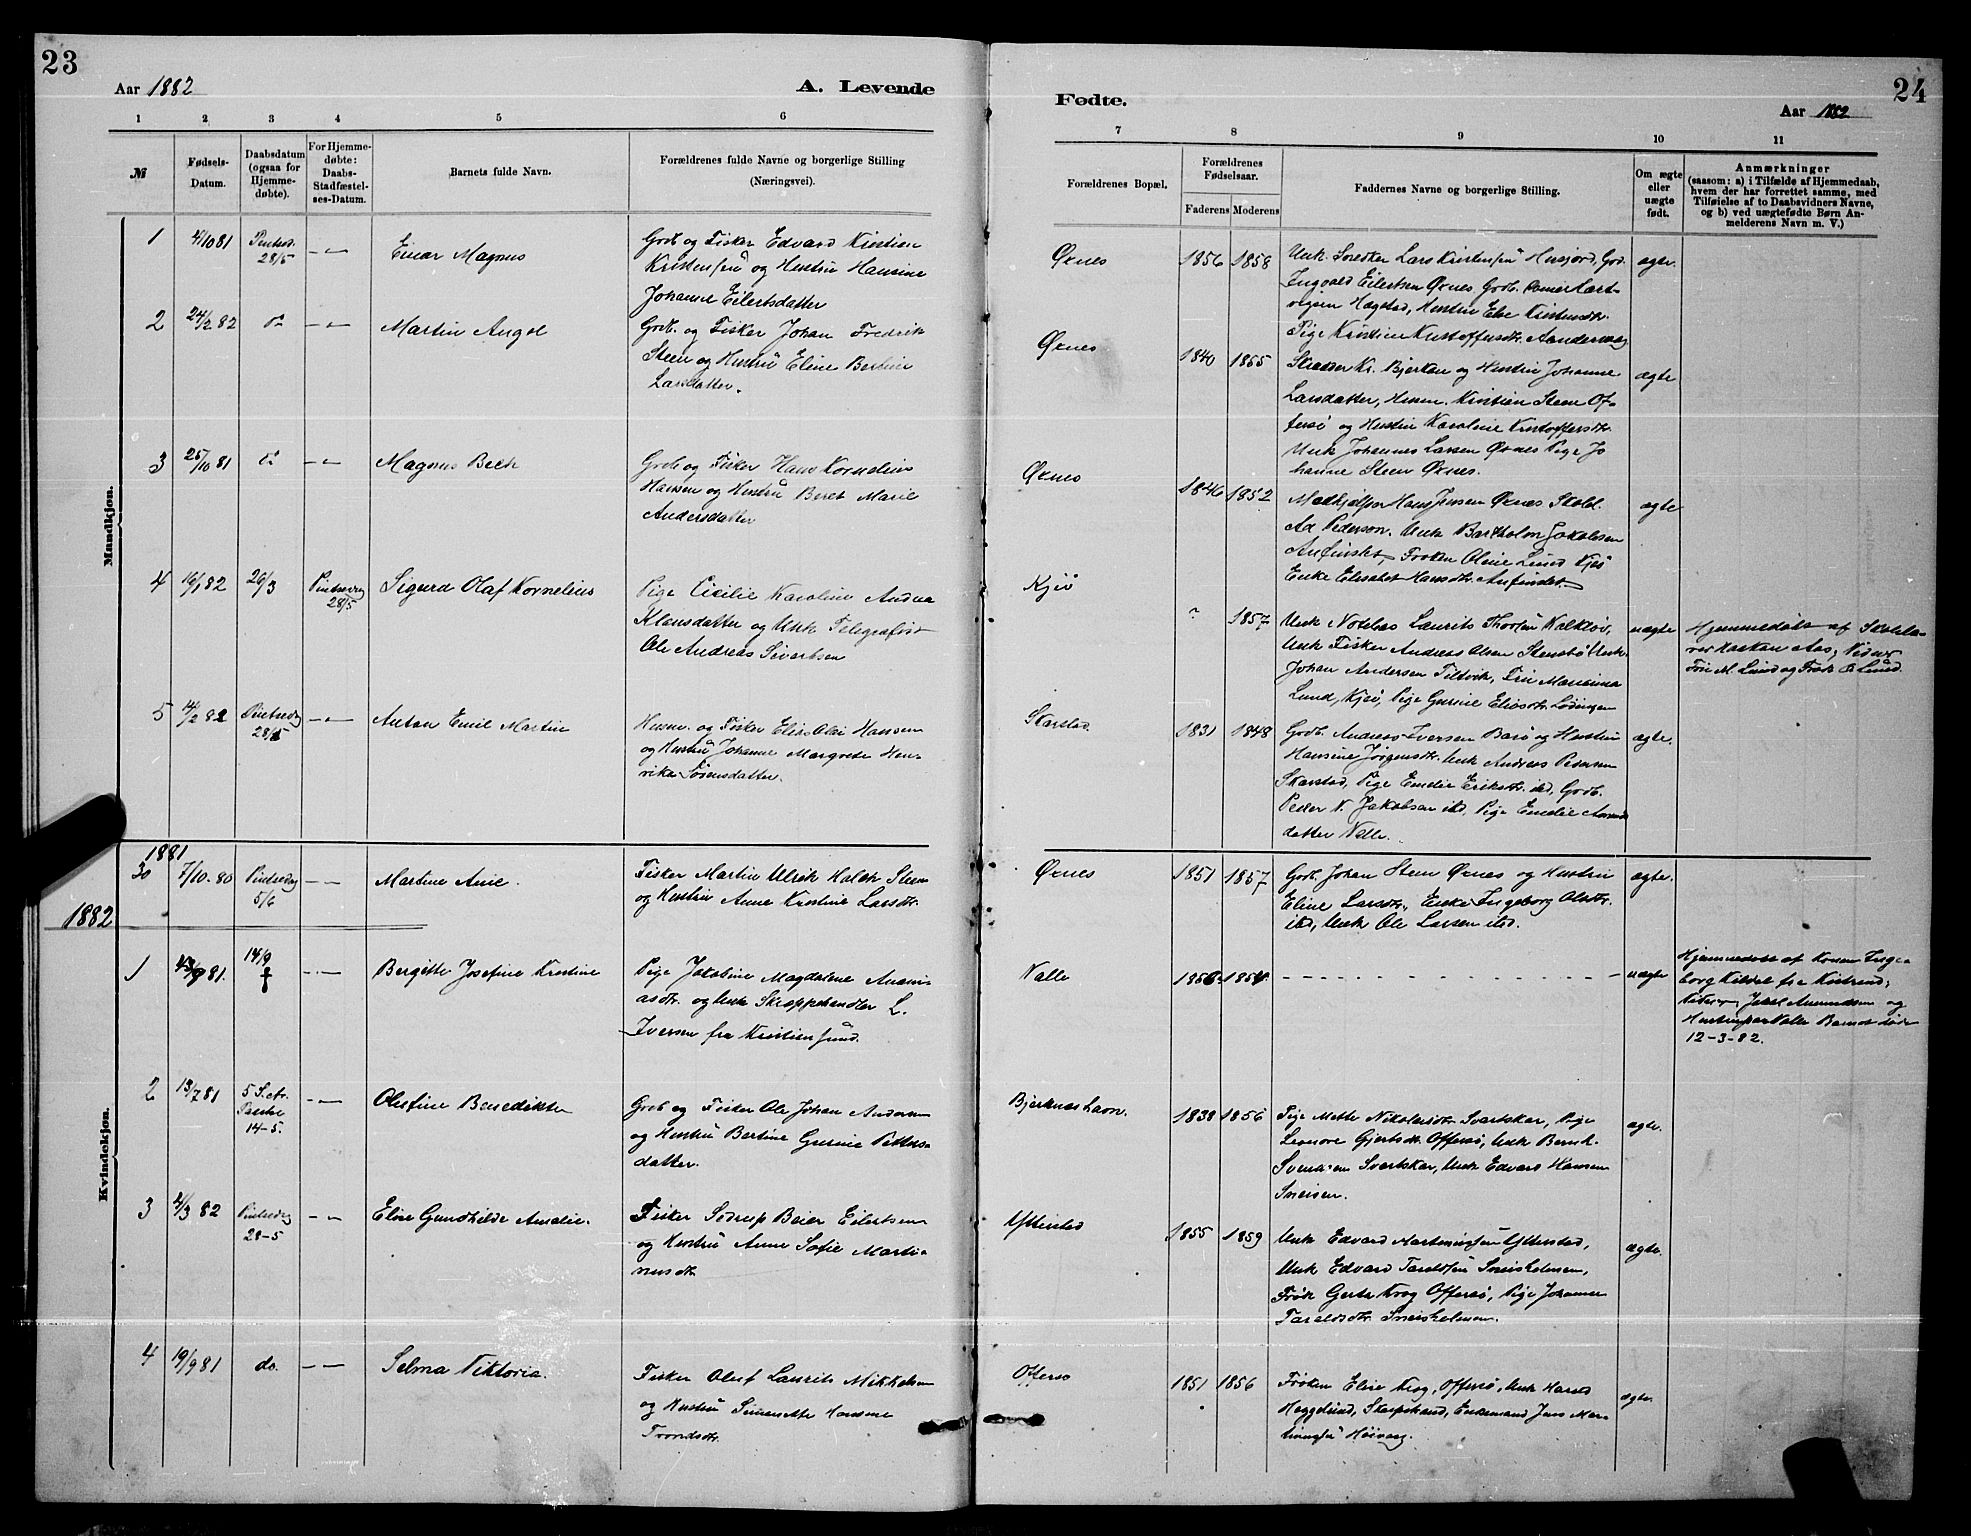 23
Aar 1882
A. Levende
1 2 3 4 5 6
№
Fødsels-
Datum.
Daabsdatum
(ogsaa for
Hjemme-
døbte).
For Hjemme-
døbte:
Daabs-
Stadfæstel-
ses-Datum.
Barnets fulde Navn.
Forældrenes fulde Navne og borgerlige Stilling
(Næringsvei).
Mandkjøn.
1 4/10 81 Pintsed. 28/5 Einar Magnus
Grdb og Fisker Edvard Kristian
Kristensen og Hustru Hansine
Johanne Eilertsdatter
2 24/2 82 do Martin Angel
Grdb. og Fisker Johan Fredrik
Steen og Hustru Eline Bertine
Larsdatter.
3 25/10 81 do Magnus Beck
Grdb og Fisker Hans Kornelius
Hansen og Hustru Beret Marie
Andersdatter
4 16/1 82 26/3 Pintsedag 28/5 Sigurd Olaf Kornelius
Pige Cicilie Karoline Andrea
Klausdatter og Unk Telegrafist
Ole Andreas Sivertsen
5 14/2 82 Pintsedag 28/5 Anton Emil Martin
Husm. og Fisker Elias Olai Hansen
og Hustru Johanne Margrete Hen-
rika Sørensdatter.
1881
30 7/10-80 Pintsedag 5/6 Martine Anie.
Fisker Martin Ulrik Halck Steen
og Hustru Anne Kristine Larsdtr.
1882
Kvindekjøn.
1 9 81. 14/9 † Bergitte Josefine Kristine
Pige Jakobine Magdalene Anani-
asdtr. og Unk Skræppehandler L.
Iversen fra Kristiansund.
2 13/7 81 5 S. e. Paaske 14-5. Olufine Benedikte
Grdb og Fisker Ole Johan Andersen
og Hustru Bertine Gurine Petters-
datter.
3 4/3 82 Pintsedag 28-5 Elise Gundhilde Amalie.
Fisker Sodrup Beier Eilertsen
og Hustru Anne Sofie Marti-
nusdtr.
4 19/9 81 do. Selma Viktoria.
Fisker Oluf Laurits Mikkelsen
og Hustru Hansine
Trondsdtr.
24
Fødte.
Aar 1882
7 8 9 10 11
Forældrenes Bopæl.
Forældrenes
Fødselsaar.
Faderens Moderens
Faddernes Navne og borgerlige Stilling.
Om ægte
eller
uægte
født.
Anmærkninger
(saasom: a) i Tilfælde af Hjemmedaab,
hvem der har forrettet samme, med
Tilføielse af to Daabsvidners Navne,
og b) ved uægtefødte Børn An-
melderens Navn m. V.)
Øxnes 1856 1858 Unk. Snedker Lars Kristensen Husjord, Grd. ægte.
Ingvald Eilertsen Øxnes, Grdb. Hart-
vigsen Hægstad, Hustru Else Kristensdtr.
Pige Kristine Kristoffersdtr.
Øxnes 1840 1855 Skræder Kr. Bjerkan og Hustru Johanne ægte
Larsdatter, Husm. Kristian Steen Of-
fersø og Hustru Karoline Kristoffersdtr.
Unk Johannes Larsen Øxnes Pige Jo
hanne Steen Øxnes.
Øxnes 1846 1852 Medhjelper Hans Jensen Øxnes Skolel. ægte
Ad Pederson. Unk Bartholm Jakobsen
Anfindset, Frøken Oline Lund Kjø
Enke Elisabet Hansdtr. Anfindset.
Kjø ? 1857 Unk Notebas Laurits Thorsen Kalkløv, uægte
Unk Fisker Andreas Olsen Stensbø Unk.
Johan Andersen Tiltvik, Fru Mansina
Lund, Kjø, Pige Gurine Eliasdtr. Lødingen
Hjemmedøbt af Skolelæ-
rer Aas; Vidner
Fru M. Lund og Frøk O. Lund.
Skarstad. 1831 1848 Grdb. Andreas Iversen Barø og Hustru ægte.
Hansine Jørgensdtr. Unk Andreas Pedersen
Skarstad, Pige Emelie Eriksdtr. ibd, Grdb.
Peder N. Jakobsen ibd, Pige Emelie
datter Valle.
Øxnes 1851 1857 Grdb. Johan Steen Øxnes og Hustru ægte.
Eline Larsdtr., Enke Ingeborg Olsdtr.
ibd, Unk Ole Larsen ibd.
Valle 1854. uægte
Hjemmedøbt af Konen Inge-
borg fra
og
Valle Barnet døde
12-3-82.
Bjerknes Lavn. 1838 1856 Pige Mette Nikolaisdtr. Svartskar, Pige ægte.
Leonore Gjertsdtr. Offersø, Unk Bernh.
Svendsen Svartskar, Unk Edvard Hansen
Sneisen.
Ytterstad 1855 1859 Unk Edvard Martinussen Ytterstad, ægte.
Unk Edvard Taraldsen Sneisholmen,
Frøk Gerta Krog Offersø, Pige Johanna
Taraldsdtr. Sneisholmen.
Offersø 1851 1856 Frøken Elise Krog, Offersø, Unk Hans ægte.
Heggelund, Skarpstrand, Enkemand Jens Mar-
tinussen